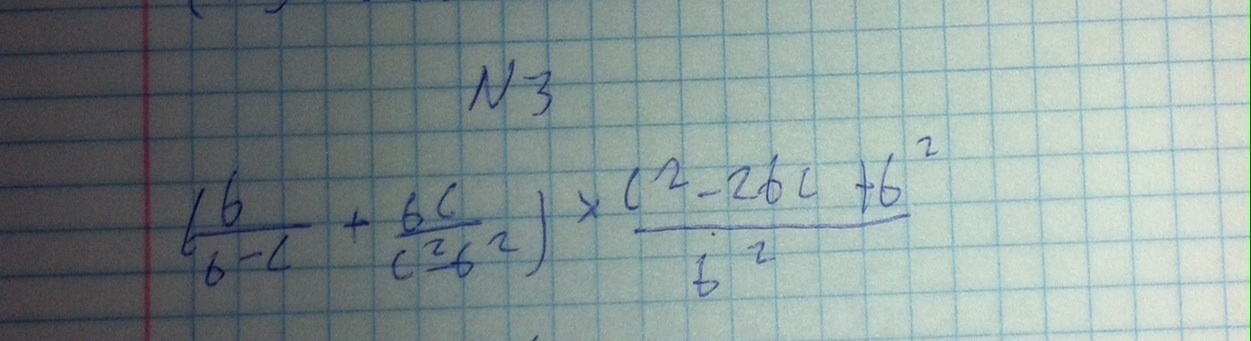 N 3
(b/(b-c) + bc/(c²-b²)) × (c²-2bc+b²)/b²